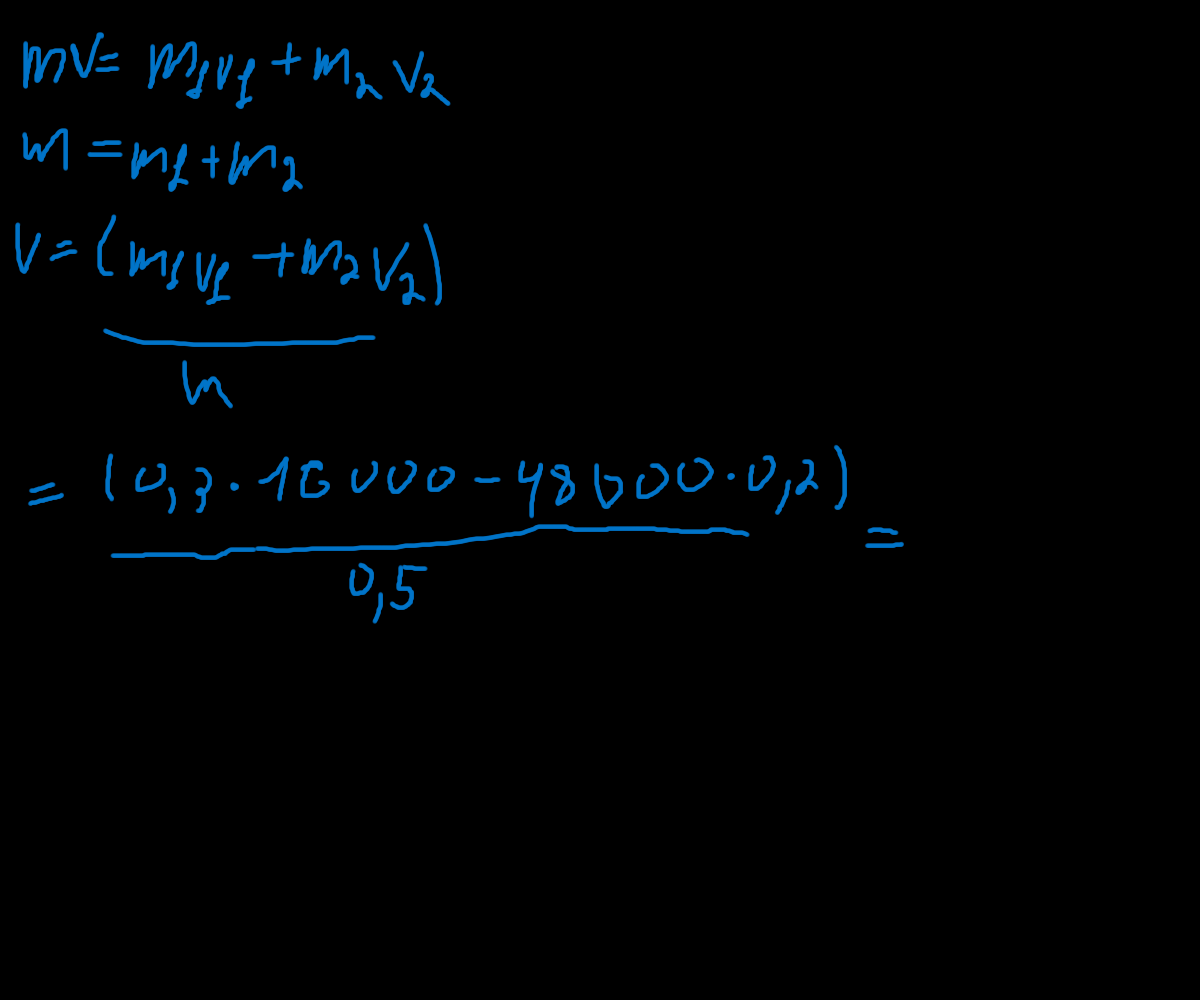 mv = m₁v₁ + m₂v₂
m = m₁ + m₂
v = (m₁v₁ + m₂v₂)
m
= (0,3 · 16000 - 48000 · 0,2) =
0,5